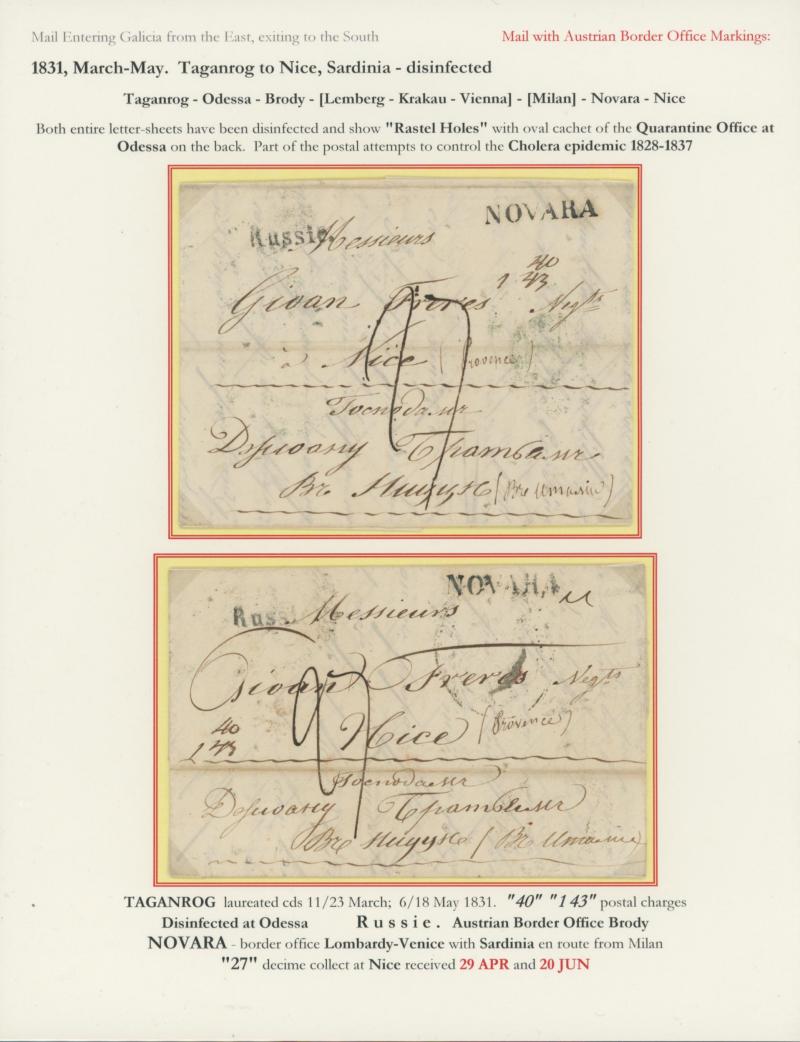 Mail Entering Galicia from the East, exiting to the South
Mail with Austrian Border Office Markings:
1831, March-May.  Taganrog to Nice, Sardinia - disinfected
Taganrog - Odessa - Brody - [Lemberg - Krakau - Vienna] - [Milan] - Novara - Nice
Both entire letter-sheets have been disinfected and show "Rastel Holes" with oval cachet of the Quarantine Office at
Odessa on the back.  Part of the postal attempts to control the Cholera epidemic 1828-1837
NOVARA
Russie Messieurs
40
1 43
Gioan Freres Negts
à Nice (Provence)
Господамъ
Братьямъ
NOVARA
Russ Messieurs
Gioan Freres Negts
40
1 43
Nice (Provence)
Господамъ
Братьямъ
TAGANROG laureated cds 11/23 March;  6/18 May 1831.  "40" "1 43" postal charges
Disinfected at Odessa   Russie.  Austrian Border Office Brody
NOVARA - border office Lombardy-Venice with Sardinia en route from Milan
"27" decime collect at Nice received 29 APR and 20 JUN